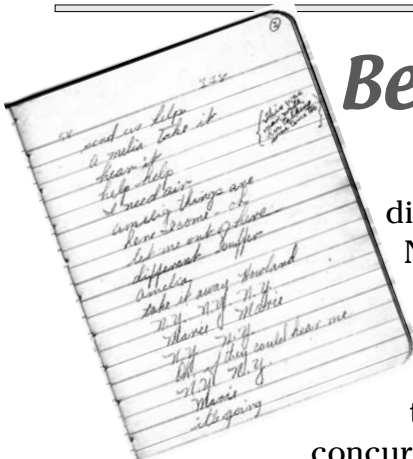 ②
Be
58 338
send us help
Amelia take it
hear it
help help
I need air
amelia things are
here I come - oh
let me out of here
different suffer
Amelia
take it away Howland
N.Y. N.Y. N.Y.
Marie Marie
N.Y. N.Y.
Oh, if they could hear me
N.Y. N.Y.
Marie
it's going
di
N
t
concur